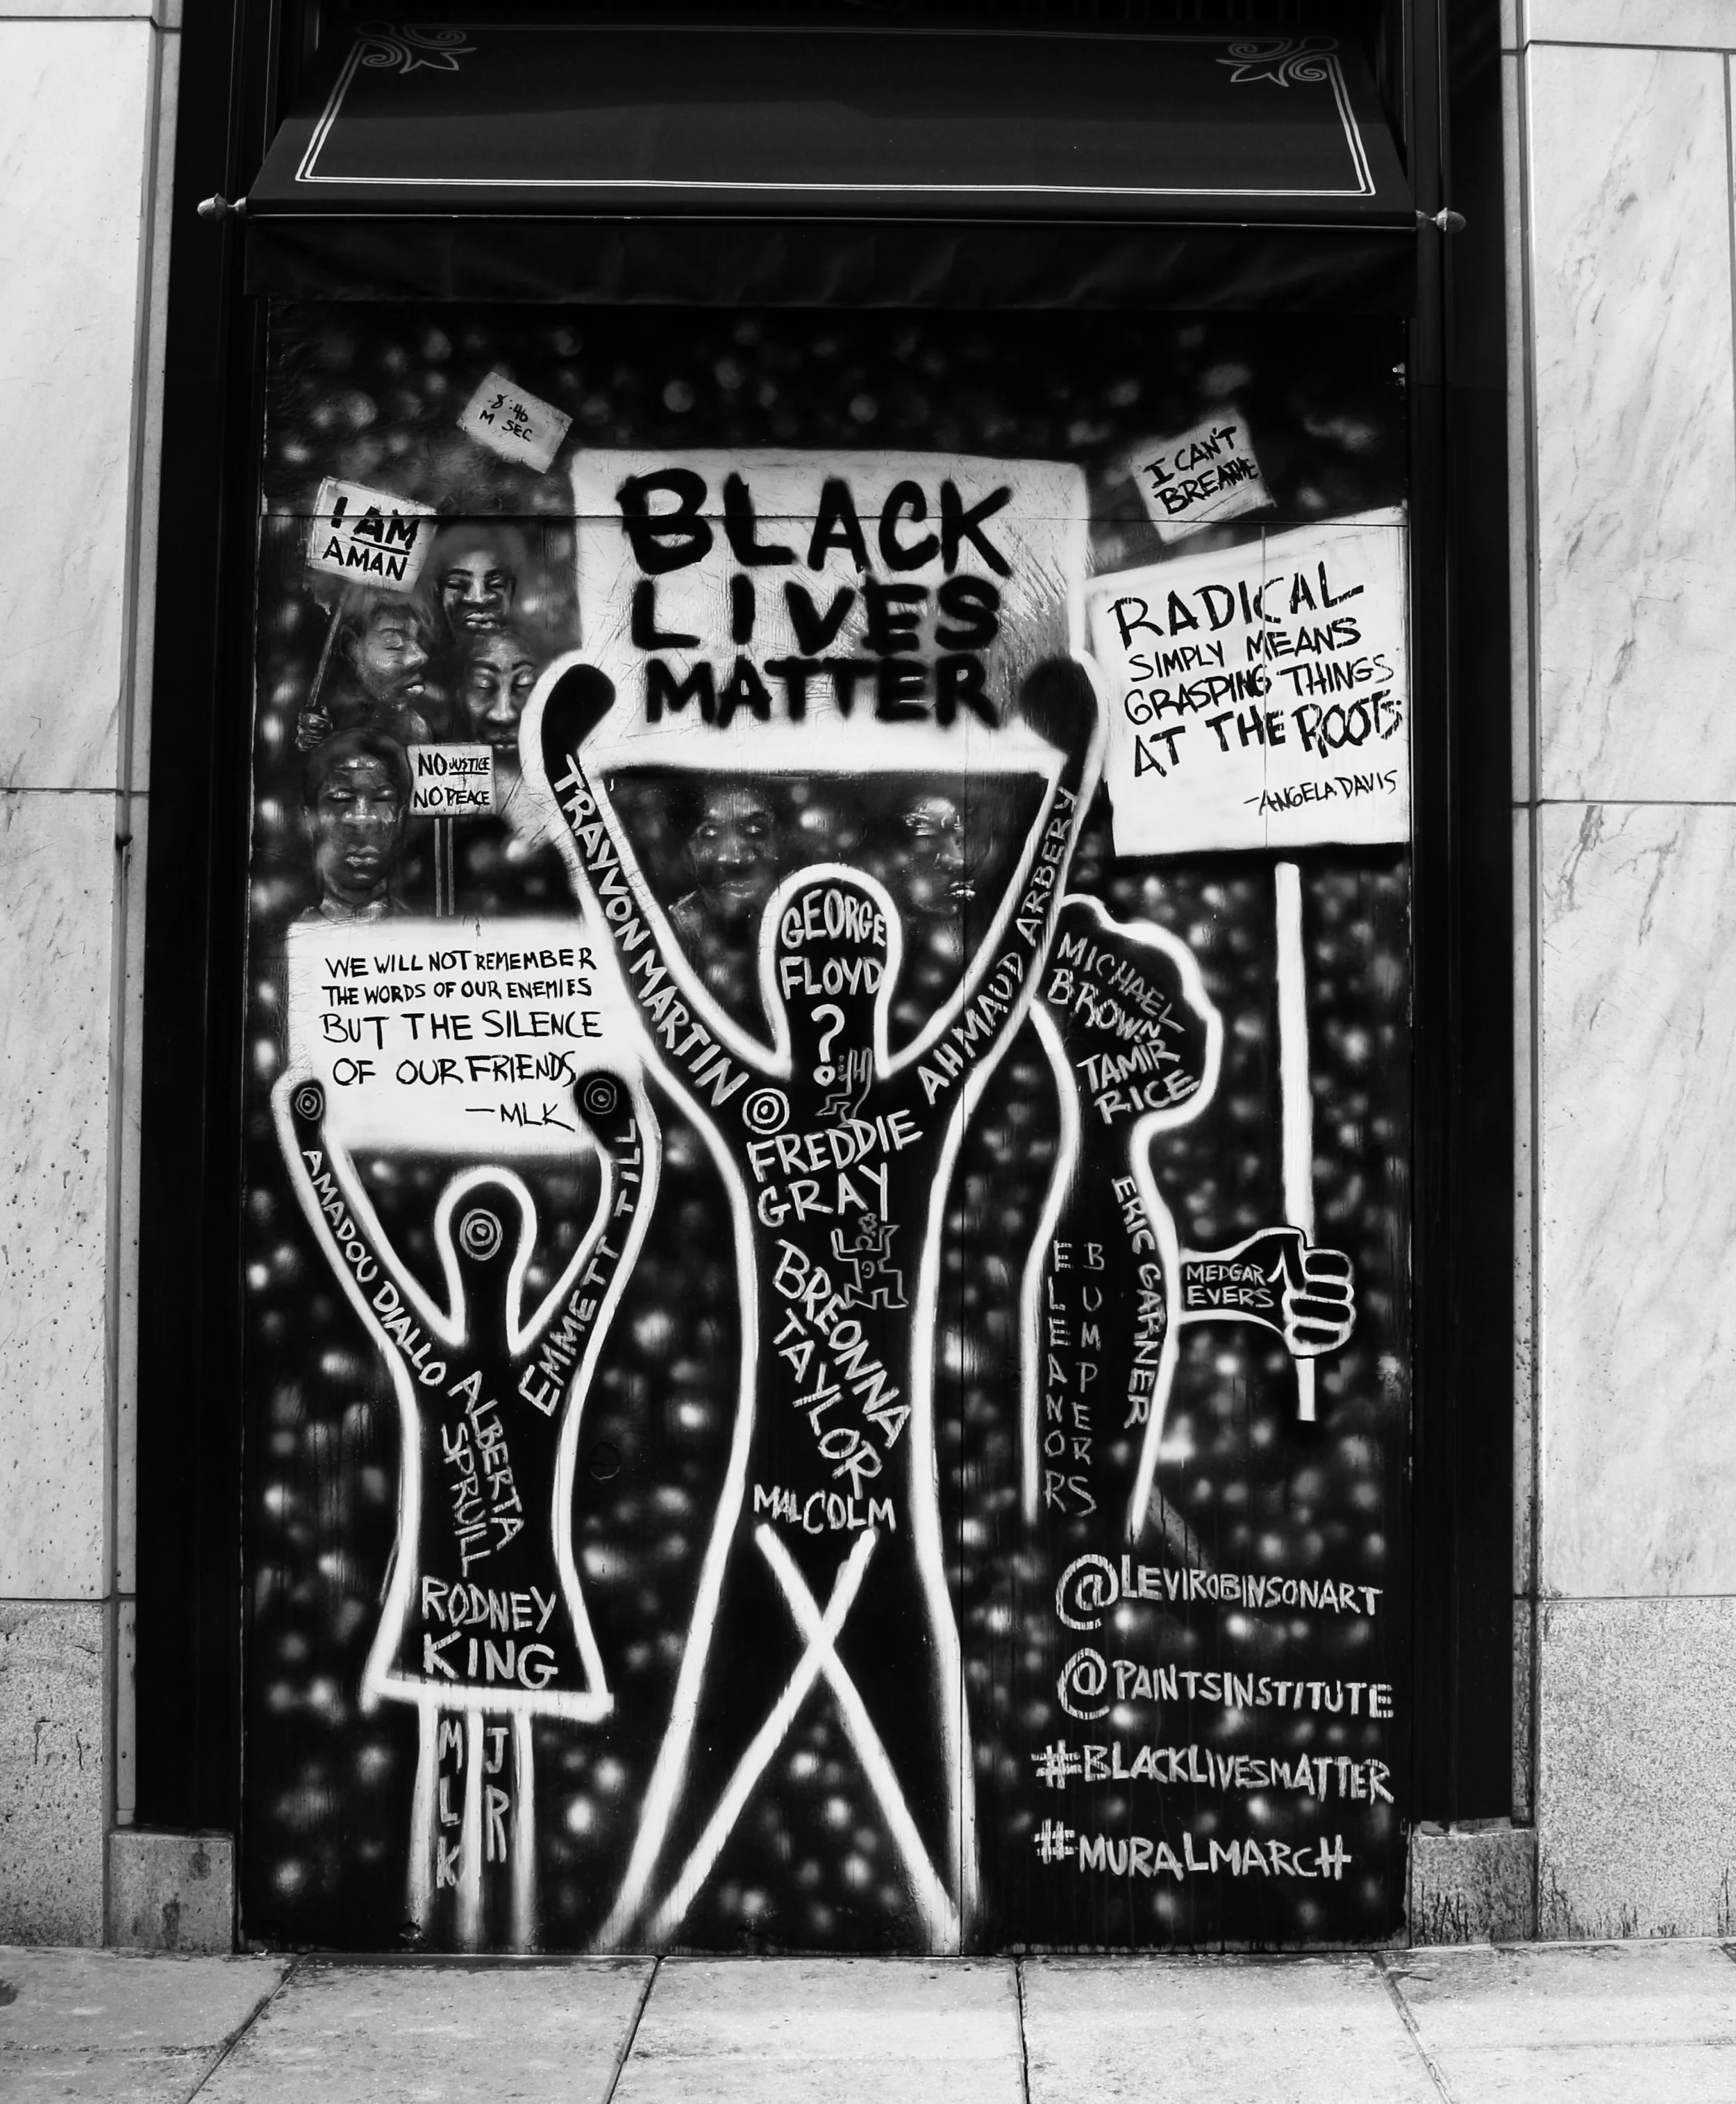 8:46
M SEC
I AM
A MAN
BLACK
LIVES
MATTER
I CAN'T
BREATHE
RADICAL
SIMPLY MEANS
GRASPING THINGS
AT THE ROOTS
-ANGELA DAVIS
NO JUSTICE
NO PEACE
WE WILL NOT REMEMBER
THE WORDS OF OUR ENEMIES
BUT THE SILENCE
OF OUR FRIENDS
-MLK
TRAYVON MARTIN
GEORGE
FLOYD
?
AHMAUD ARBERY
FREDDIE
GRAY
BREONNA
TAYLOR
MALCOLM
X
MICHAEL
BROWN
TAMIR
RICE
ERIC GARNER
ELEANORS
BUMPER
MEDGAR
EVERS
AMADOU DIALLO
EMMETT TILL
ALBERTA
SPRUILL
RODNEY
KING
MLK
JR
@LEVIROBINSONART
@PAINTSINSTITUTE
#BLACKLIVESMATTER
#MURALMARCH